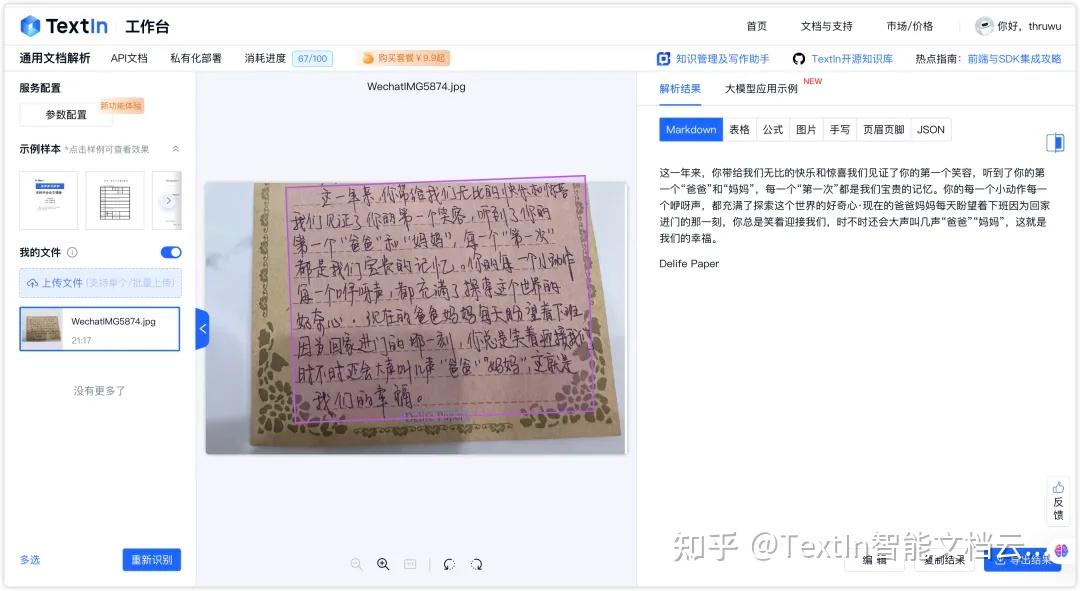 TextIn 工作台
首页 文档与支持 市场/价格 你好，thruwu
通用文档解析 API文档 私有化部署 消耗进度 67/100 购买套餐￥9.9起
知识管理及写作助手 TextIn开源知识库 热点指南：前端与SDK集成攻略
服务配置
参数配置 新功能体验
示例样本 *点击样例可查看效果
我的文件
上传文件 (支持单个/批量上传)
WechatIMG5874.jpg
21:17
没有更多了
多选 重新识别
WechatIMG5874.jpg
这一年来，你带给我们无比的快乐和惊喜
我们见证了你的第一个笑容，听到了你的
第一个“爸爸”和“妈妈”，每一个“第一次”
都是我们宝贵的记忆。你的每一个小动作
每一个咿呀声，都充满了探索这个世界的
好奇心·现在的爸爸妈妈每天盼望着下班
因为回家进门的那一刻，你总是笑着迎接我们
时不时还会大声叫几声“爸爸”“妈妈”，这就是
我们的幸福。
Delife Paper
解析结果 大模型应用示例 NEW
Markdown 表格 公式 图片 手写 页眉页脚 JSON
这一年来，你带给我们无比的快乐和惊喜我们见证了你的第一个笑容，听到了你的
第一个“爸爸”和“妈妈”，每一个“第一次”都是我们宝贵的记忆。你的每一个小动作每一
个咿呀声，都充满了探索这个世界的好奇心·现在的爸爸妈妈每天盼望着下班因为回家
进门的那一刻，你总是笑着迎接我们，时不时还会大声叫几声“爸爸”“妈妈”，这就是
我们的幸福。
Delife Paper
反馈
编辑 复制结果 导出结果
知乎 @TextIn智能文档云...